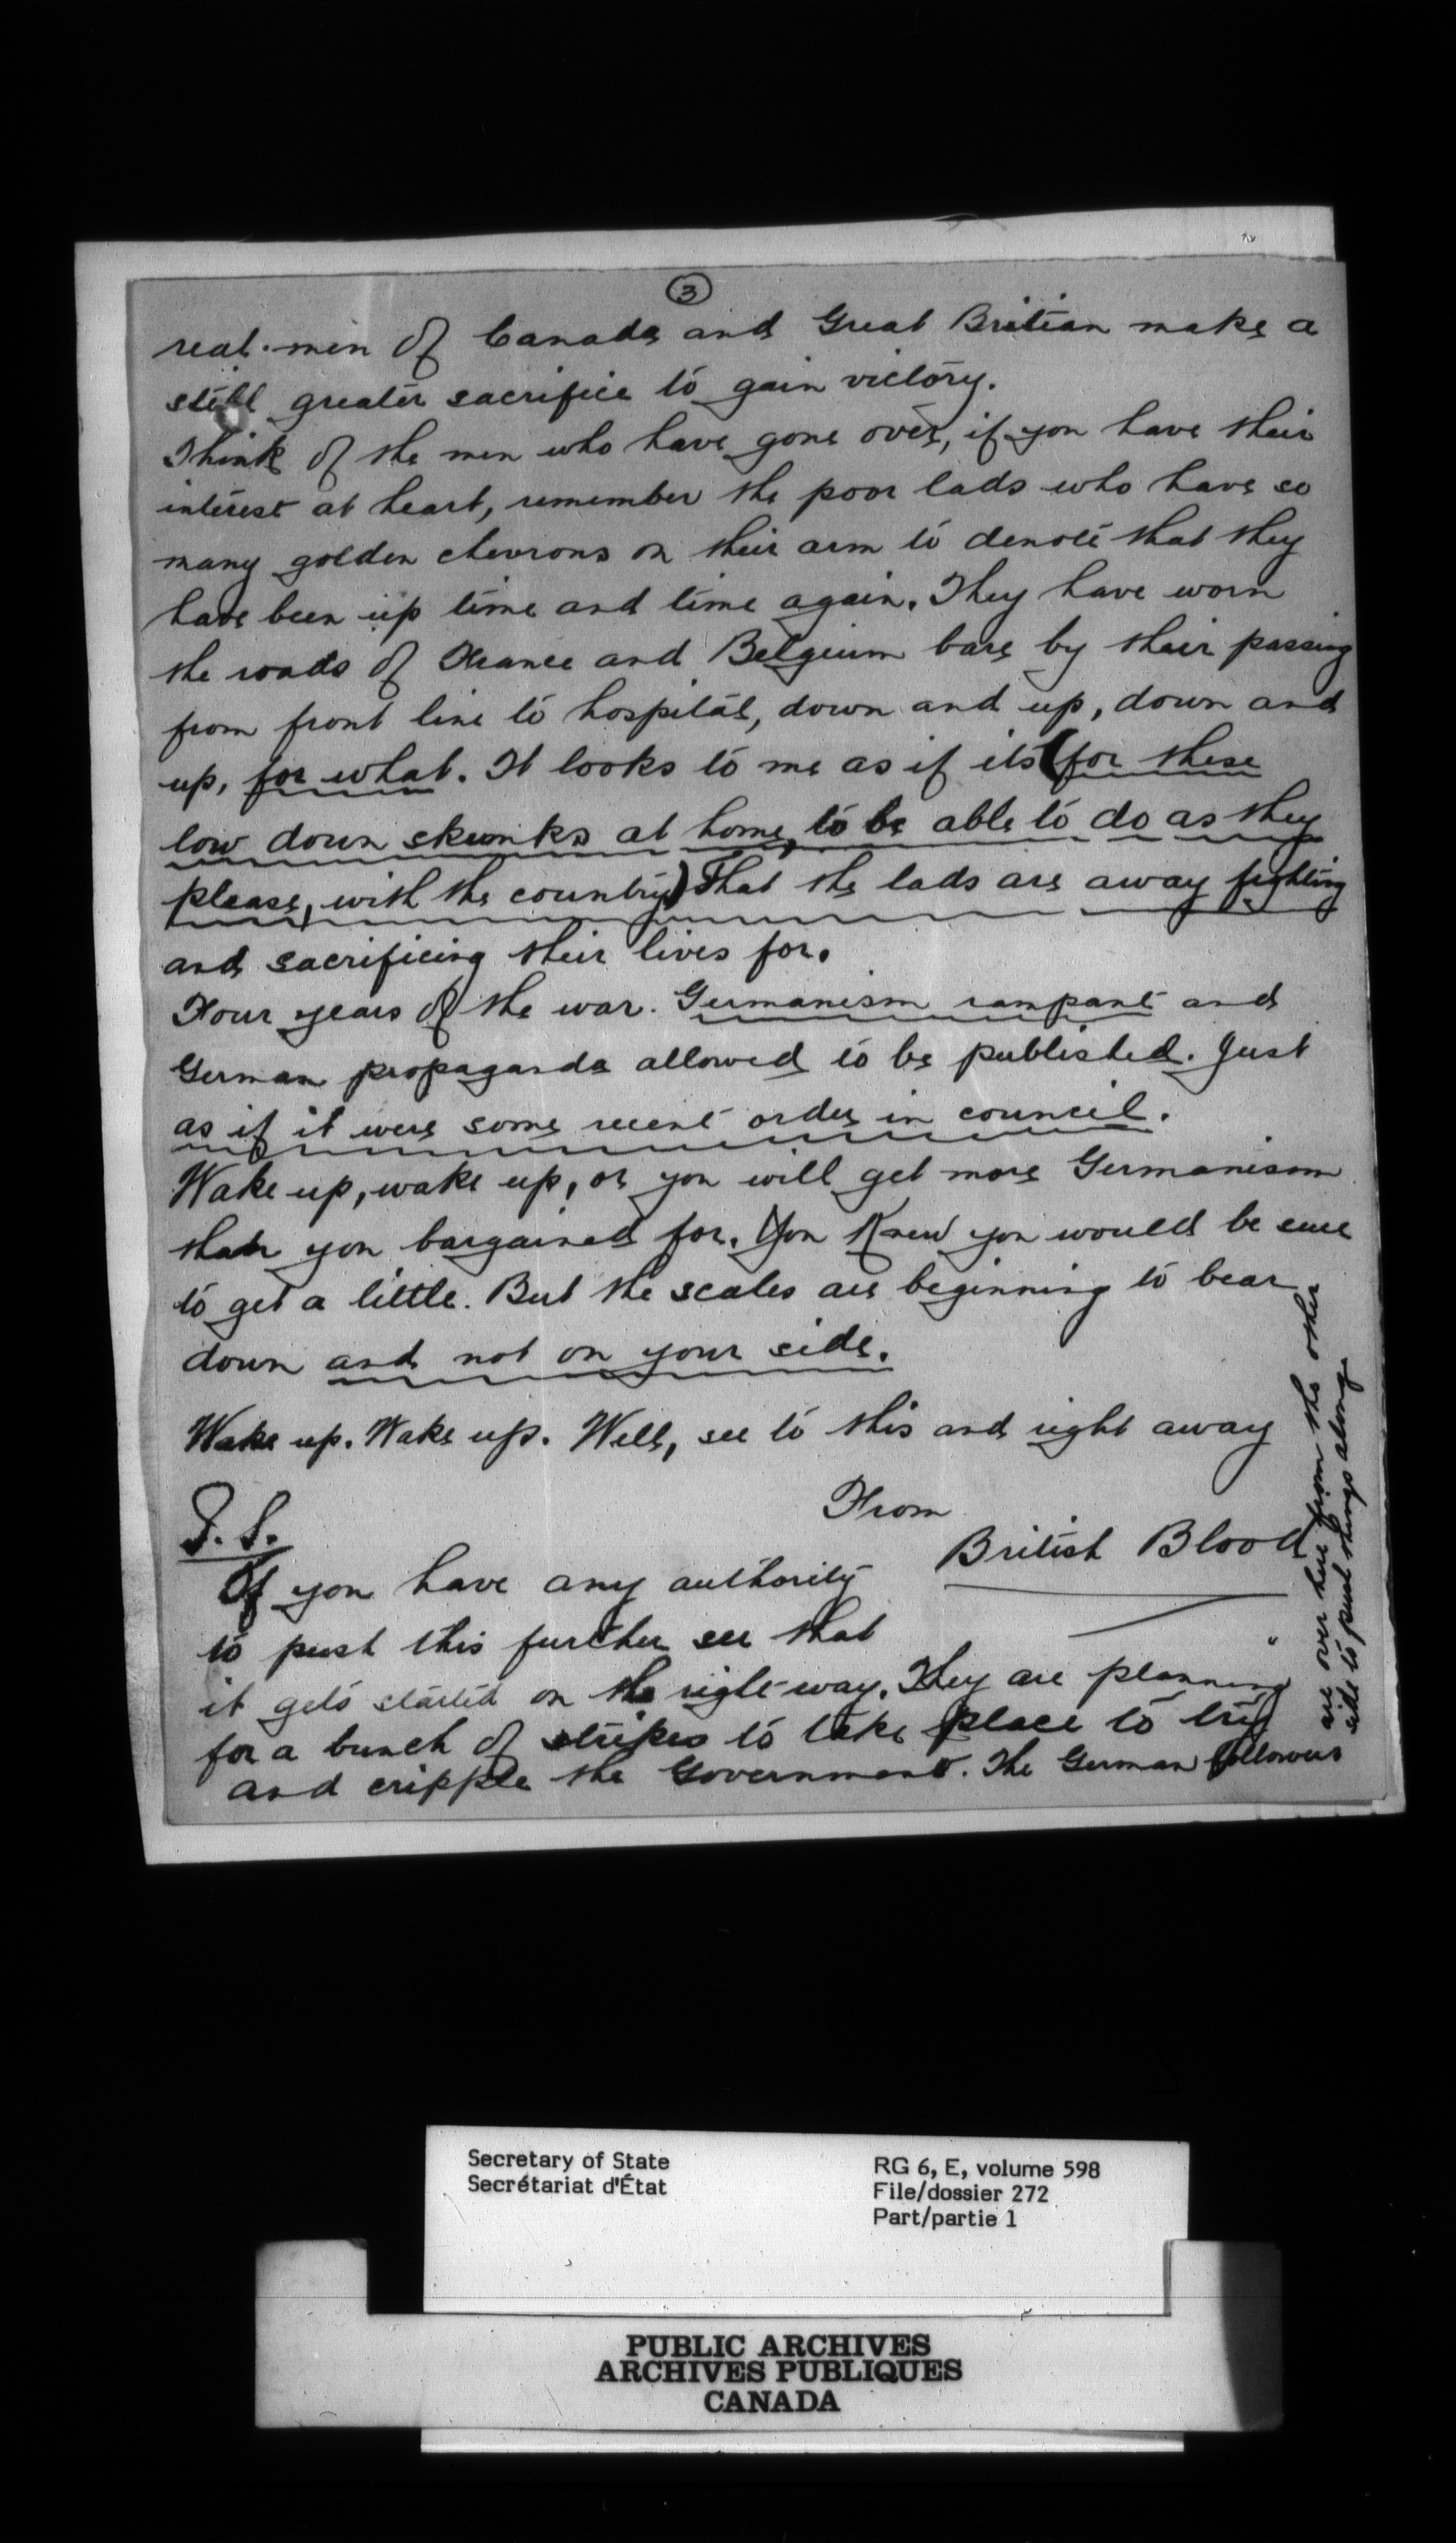 3
real men of Canada and Great Britian make a
still greater sacrifice to gain victory.
Think of the men who have gone over, if you have their
interest at heart, remember the poor lads who have so
many golden chevrons on their arm to denote that they
have been up time and time again. They have worn
the roads of France and Belgium bare by their passing
from front line to hospital, down and up, down and
up, for what. It looks to me as if its (for these
low down skunks at home, to be able to do as they
please, with the country) That the lads are away fighting
and sacrificing their lives for.
Four years of the war. Germanism rampant and
German propaganda allowed to be published. Just
as if it were some recent order in council.
Wake up, wake up, or you will get more Germanism
than you bargained for. You Knew you would be sure
to get a little. But the scales are beginning to bear
down and not on your side.
Wake up. Wake up. Well, see to this and right away
From
British Blood
P.S.
If you have any authority
to push this further see that
it gets started on the right way. They are planning
for a bunch of strikes to take place to try
and cripple the Government. The German followers
are over here from the other
side to push things along
Secretary of State
Secrétariat d'État
RG 6, E, volume 598
File/dossier 272
Part/partie 1
PUBLIC ARCHIVES
ARCHIVES PUBLIQUES
CANADA